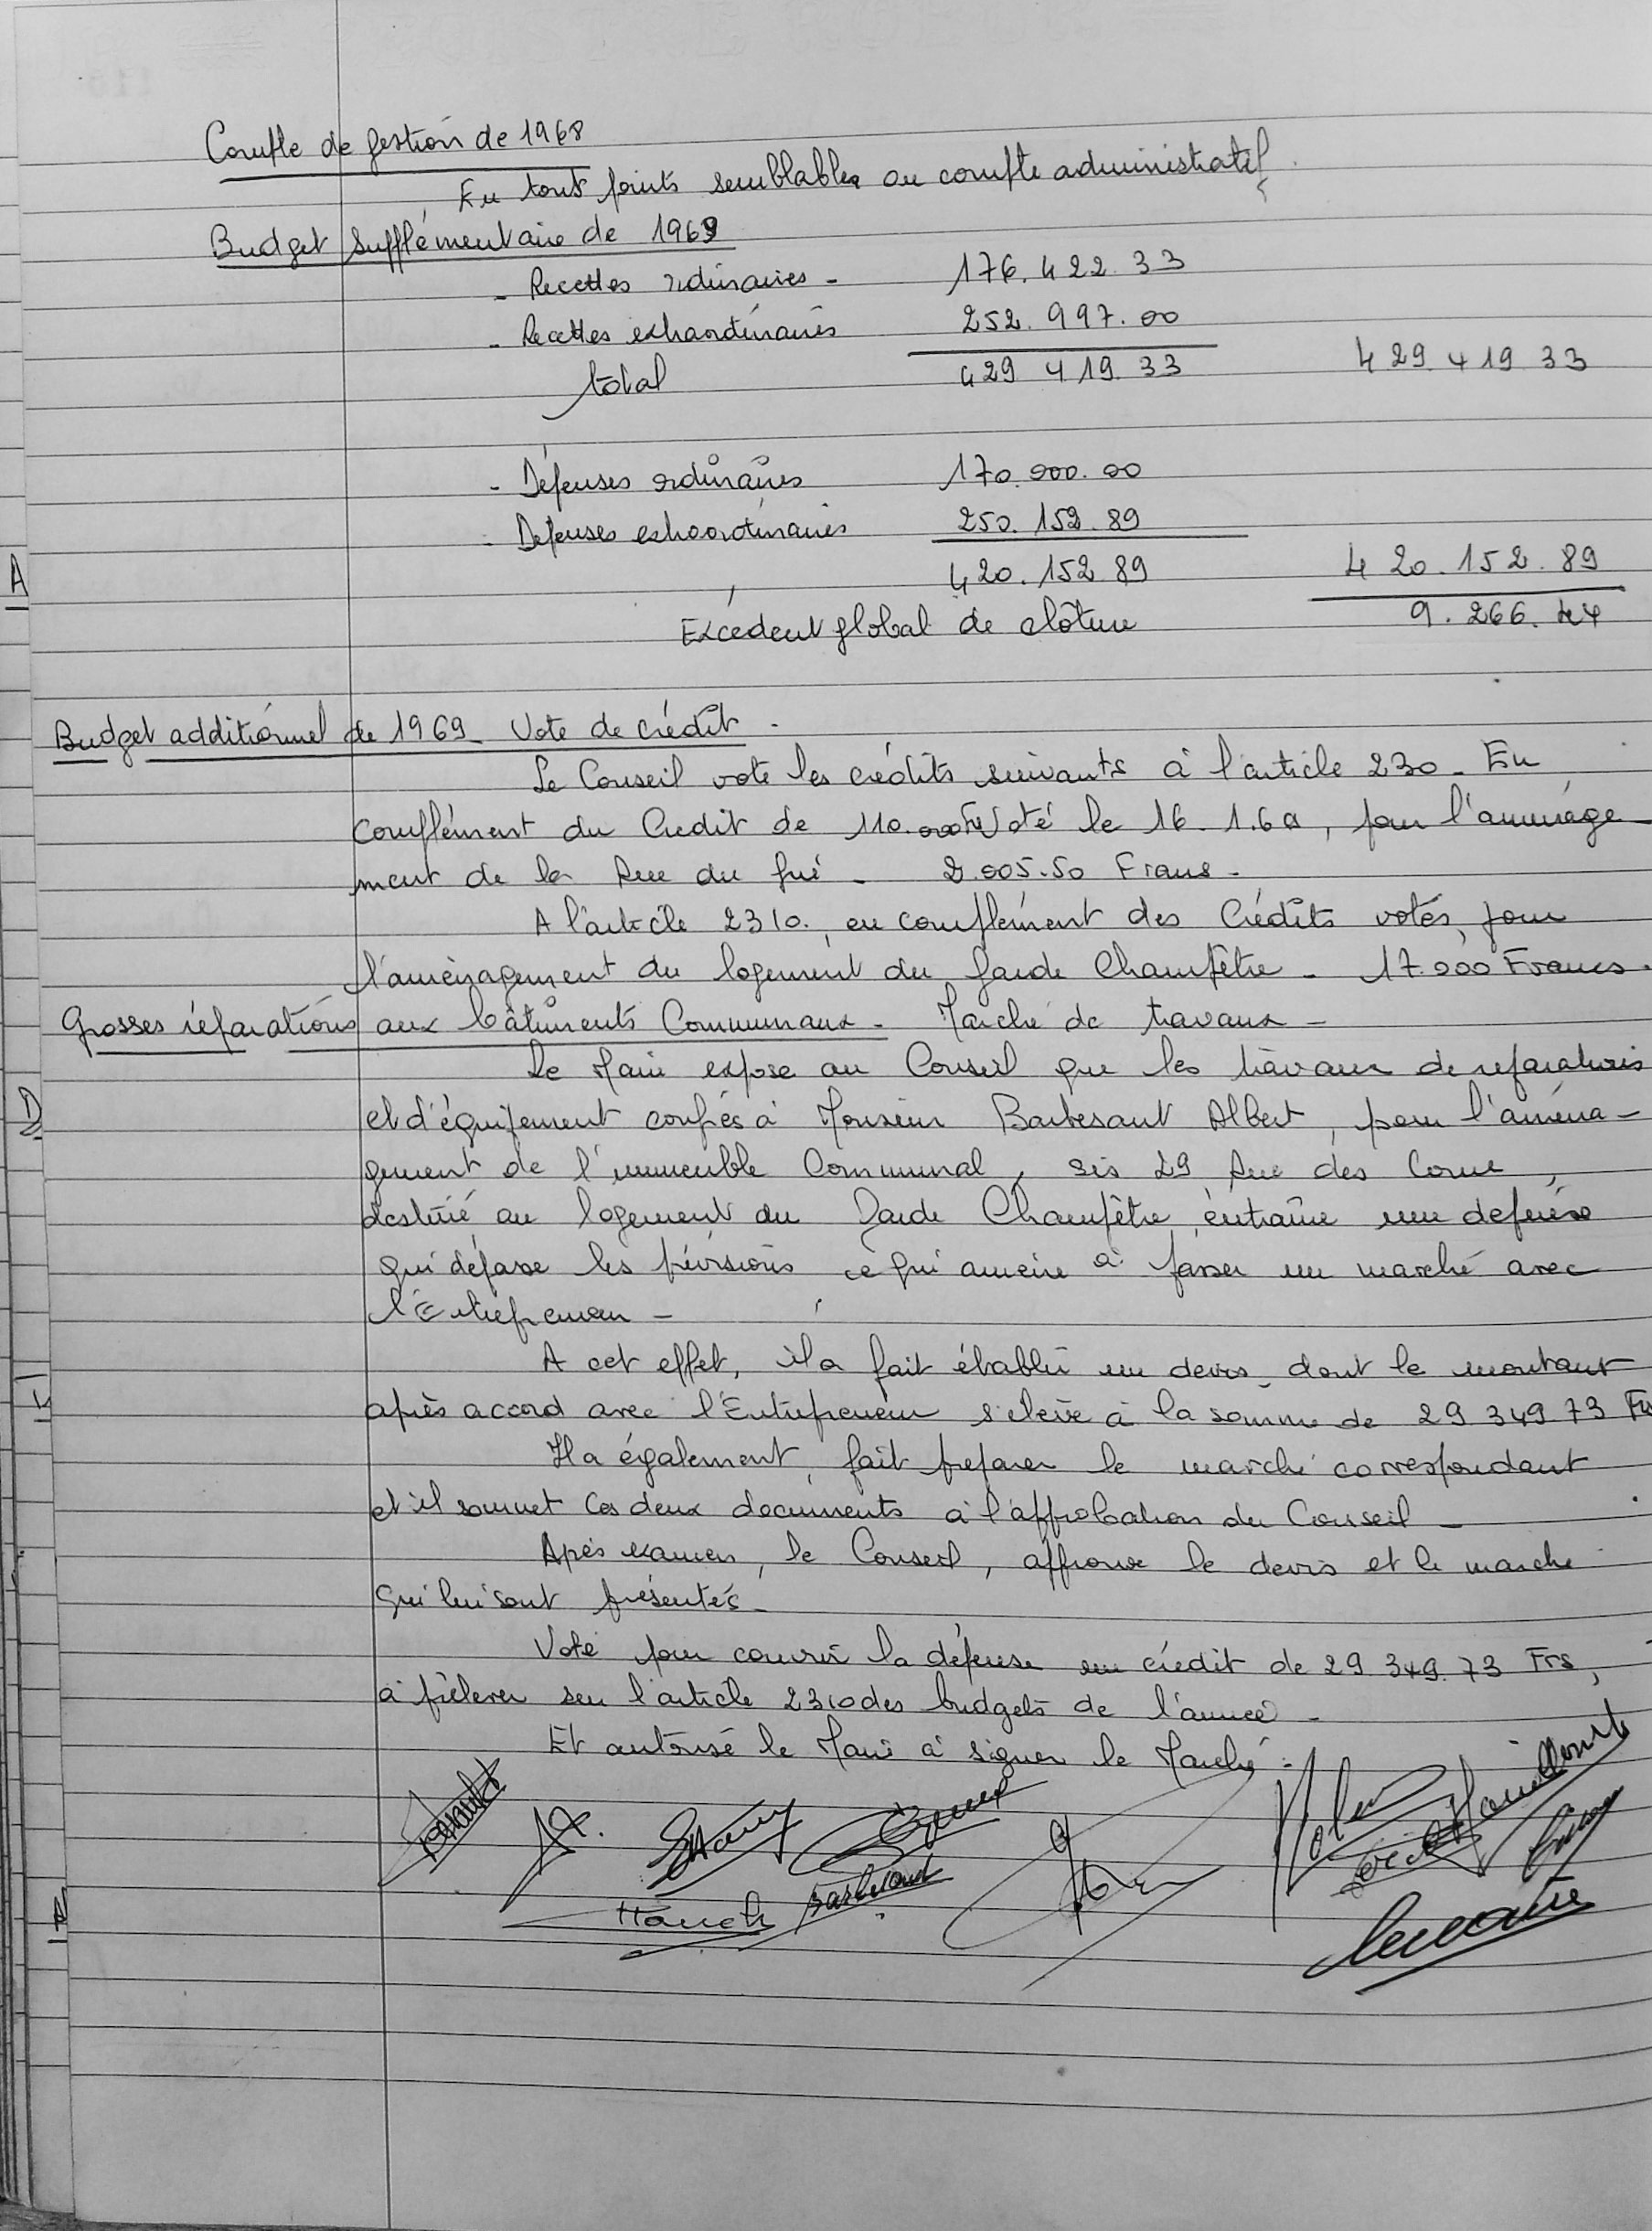 Compte de gestion de 1968
En tout points semblables au compte administratif.
Budget supplémentaire de 1969
- Recettes ordinaires - 176.422.33
- Recettes extraordinaires 252.997.00
total 429 419.33 429.419 33
- Dépenses ordinaires 170.000.00
- Dépenses extraordinaires 250.152.89
A
420.152 89 420.152.89
Excédent global de clôture 9.266.44
Budget additionnel de 1969 - Vote de crédit -
Le Conseil vote les crédits suivants à l'article 230 - En
Complément du Crédit de 110.000 Fr voté le 16.1.69, pour l'aménage-
ment de la Rue du gué - 2.005.50 Francs -
A l'article 2310, en complément des Crédits votés, pour
l'aménagement du logement du garde Champêtre - 17.000 Francs.
Grosses réparations aux bâtiments Communaux - Marché de travaux -
Le Maire expose au Conseil que les travaux de réparations
D
et d'équipement confiés à Monsieur Barbesant Albert, pour l'aména-
gement de l'immeuble Communal, sis 29 Rue des
destiné au logement du Garde Champêtre, entraîne une dépense
qui dépasse les prévisions ce qui amène à passer un marché avec
l'Entrepreneur -
A cet effet, il a fait établir un devis, dont le montant
après accord avec l'Entrepreneur s'élève à la somme de 29 349 73 Frs
Il a également, fait préparer le marché correspondant
et il soumet ces deux documents à l'approbation du Conseil -
Après examen, le Conseil, approuve le devis et le marché
qui lui sont présentés -
Vote pour couvrir la dépense un crédit de 29 349.73 Frs,
à prélever sur l'article 2310 des budgets de l'année -
Et autorise le Maire à signer le Marché -